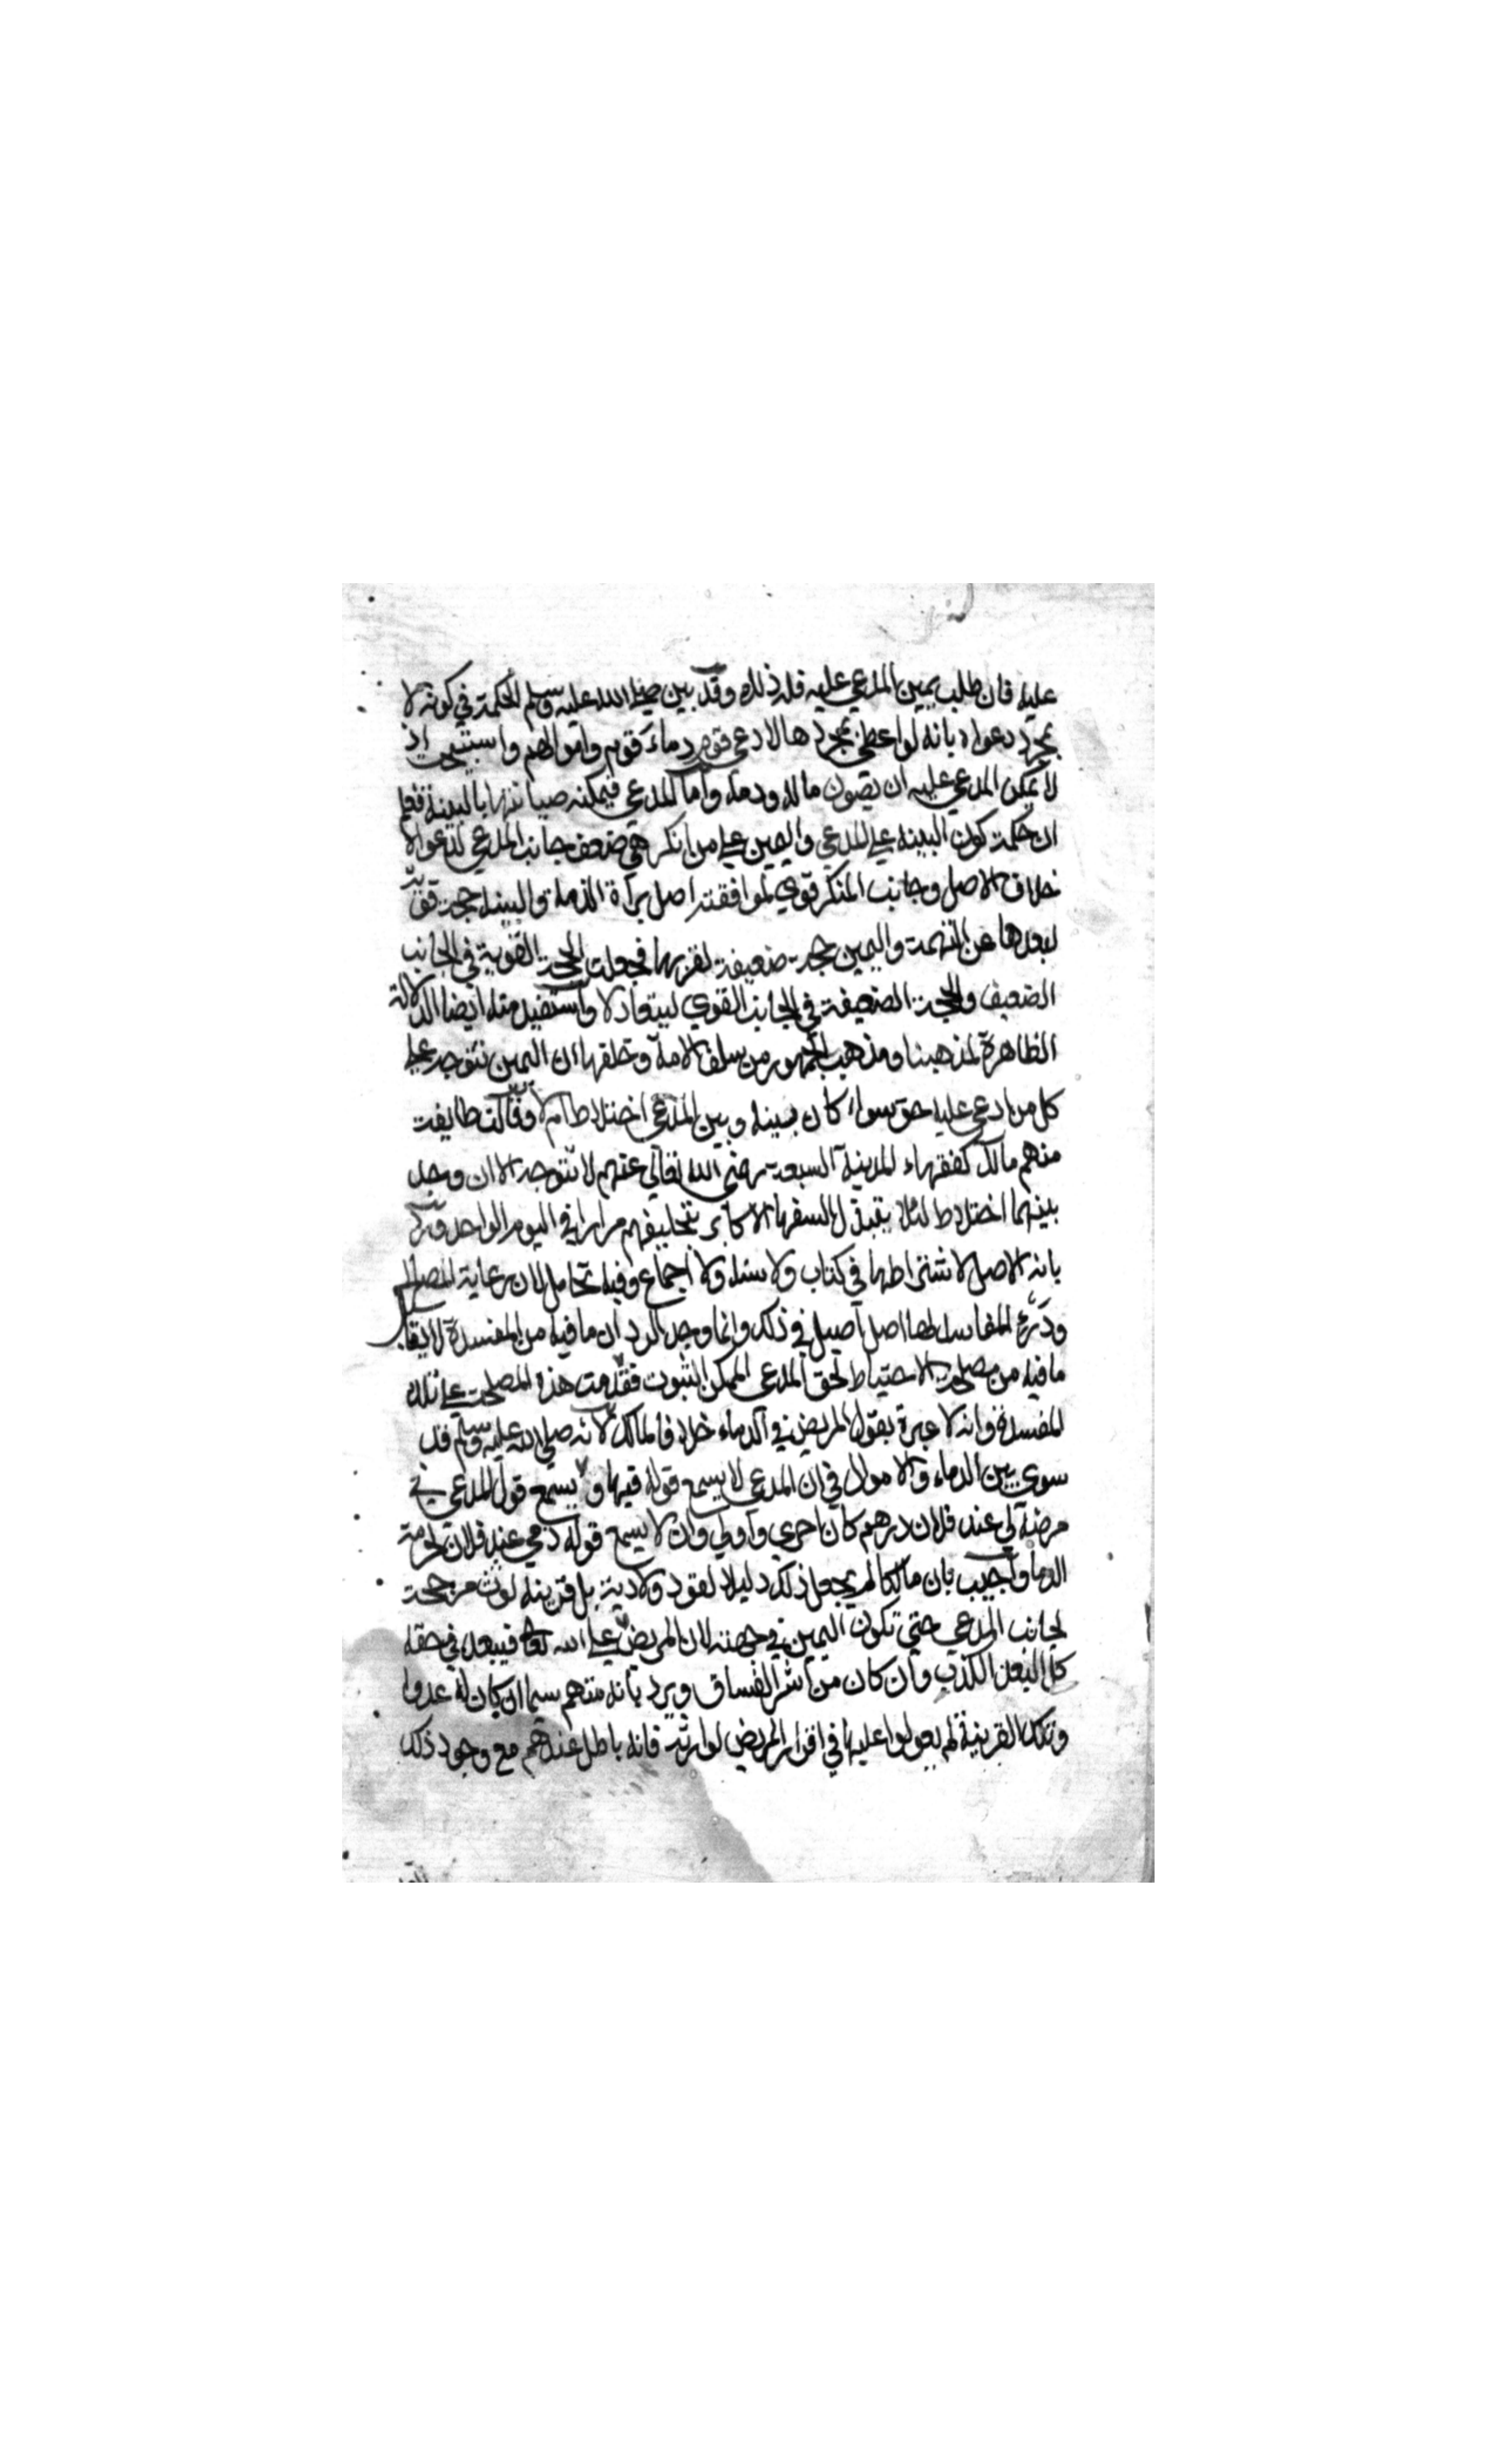 عليه فان طلب يمين المدعي عليه فله ذلك وقد بين صلي الله عليه وسلم الحكمة في كونه لا
بمجرد دعواه بانه لو اعطي بمجردها لادعي قوم دماء قوم واموالهم واستبيحت اذ
لا يمكن المدعي عليه ان يصون ماله ودمه واما المدعي فيمكنه صيانتها بالبينة فعلم
ان حكمة كون البينة علي المدعي واليمين علي من انكر هي ضعف جانب المدعي لدعواه
خلاف الاصل وجانب المنكر قوي لموافقته اصل براة الذمة والبينة حجة قوية
لبعدها عن التهمة واليمين حجة ضعيفة لقربها فجعلت الحجة القوية في الجانب
الضعيف والحجة الضعيفة في الجانب القوي ليتعادلا واستفيد منه ايضا الدلالة
الظاهرة لمذهبنا ومذهب الجمهور من سلف الامة وخلفها ان اليمين تتوجه علي
كل من ادعي عليه حق سواء كان بينه وبين المدعي اختلاط ام لا وقالت طايفة
منهم مالك كفقهاء المدينة السبعة رضي الله تعالي عنهم لا تتوجه الا ان وجد
بينهما اختلاط لئلا يتبذل السفهاء الاكابر بتحليفهم مرارا في اليوم الواحد ورد
بانه لا اصل لاشتراطها في كتاب ولا سنة ولا اجماع وفيه تحامل لان رعاية المصالح
ودرء المفاسد لها اصل اصيل في ذلك وانما وجه الرد ان ما فيه من المفسدة لا يقابل
ما فيه من مصلحة الاحتياط لحق المدعي الممكن الثبوت فقدمت هذه المصلحة علي تلك
المفسدة وانه لا عبرة بقول المريض في الدماء خلافا لمالك لانه صلي الله عليه وسلم قد
سوي بين الدماء والاموال في ان المدعي لا يسمع قوله فيها ولا يسمع قول المدعي في
مرضه لي عند فلان درهم كان احري واولي وان لا يسمع قوله دمي عند فلان لحرمة
الدما واجيب بان مالكا لم يجعل ذلك دليلا لقود ولا دية بل قرينة لوث مرجحة
لجانب المدعي حتي تكون اليمين في جهته لان المريض علي الله تعالي فيبعد في حقه
كل البعد الكذب وان كان من اشر الفساق ويرد بانه متهم سيما ان كان له عدوا
وتلك القرينة لم يعولوا عليها في اقرار المريض لوارثه فانه باطل عندهم مع وجود ذلك